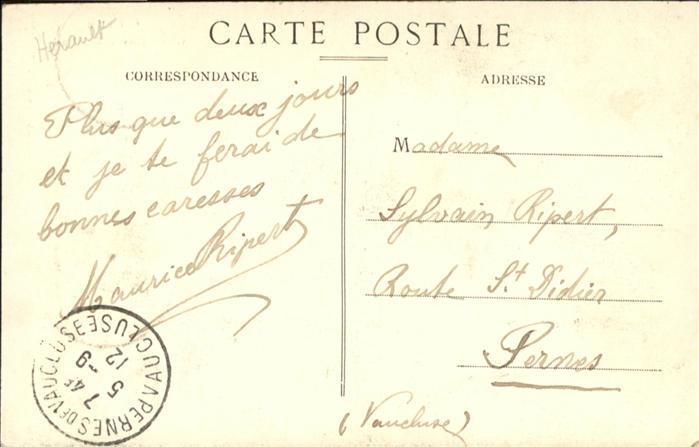 Hérault
CARTE POSTALE
CORRESPONDANCE
Plus que deux jours
et je te ferai de
bonnes caresses
Maurice Ripert
ADRESSE
Madame
Sylvain Ripert,
Route St Didier
Pernes
(Vaucluse)
PERNES DE VAUCLUSE
VAUCLUSE
7 45
5 -9
12